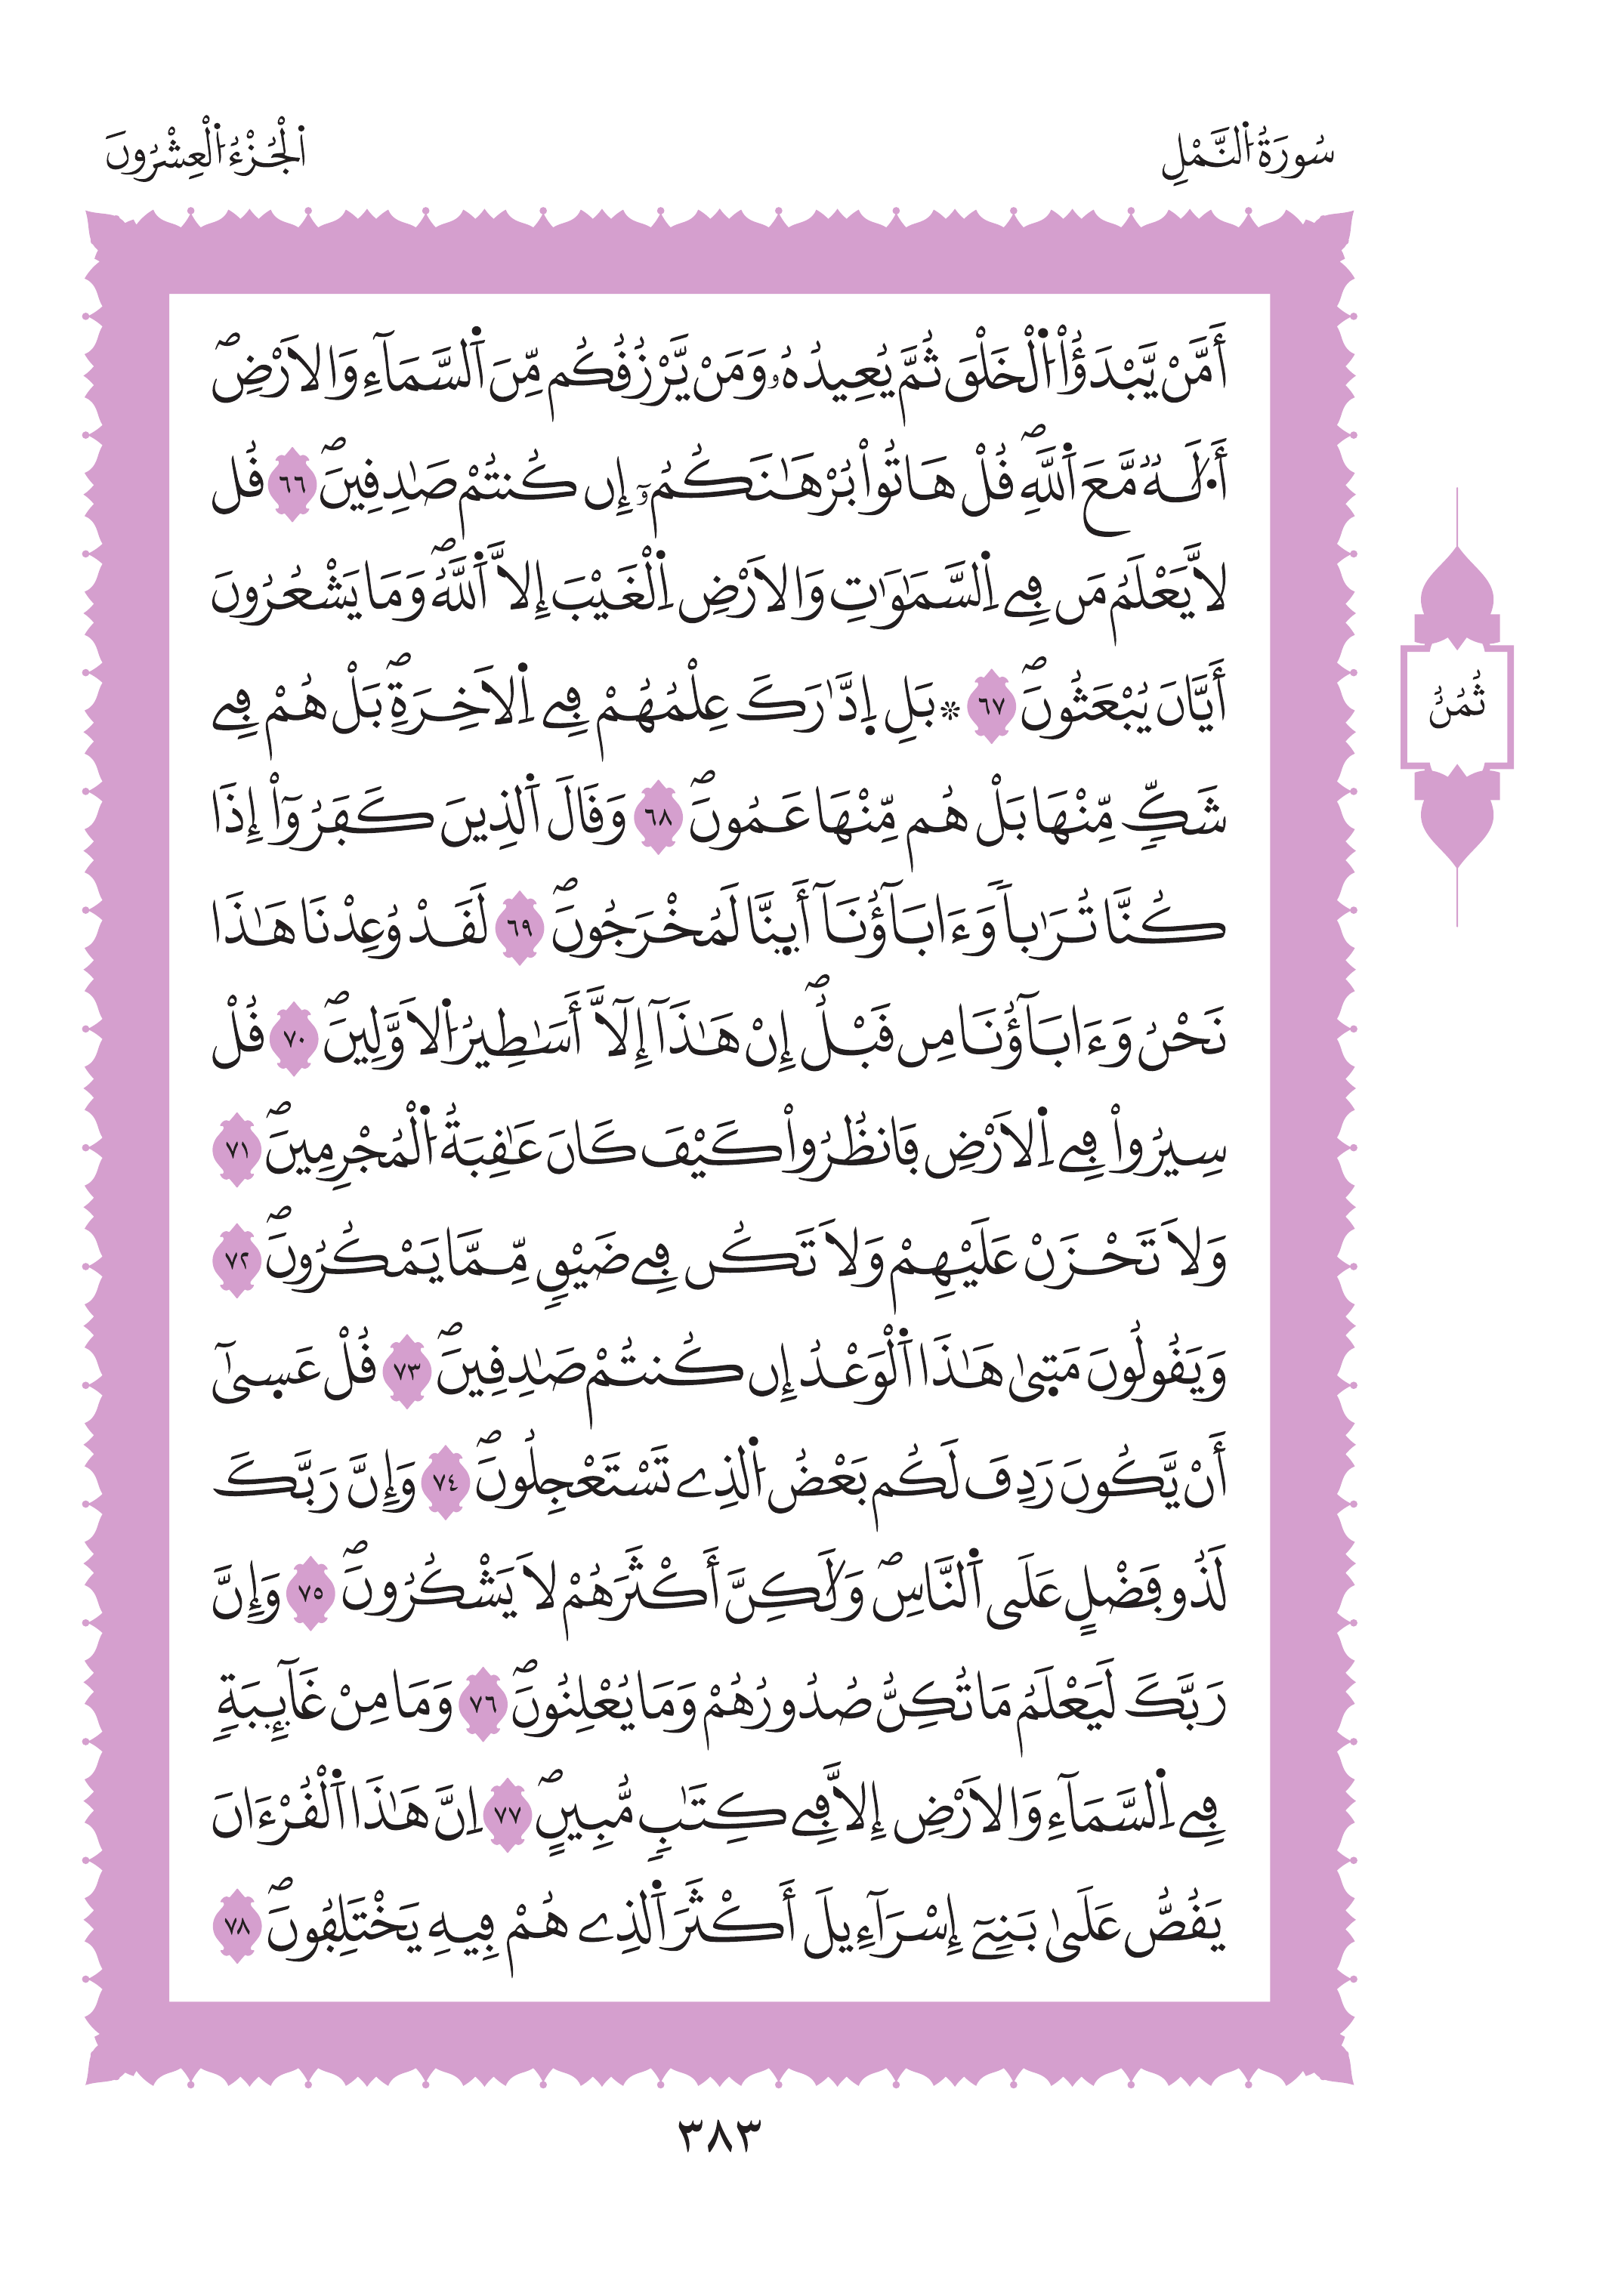 سُورَةُ اَ۬لنَّمْلِ
اَ۬لْجُزْءُ اُ۬لْعِشْرُونَ
أَمَّنْ يَّبْدَؤُاْ اُ۬لْخَلْقَ ثُمَّ يُعِيدُهُۥ وَمَنْ يَّرْزُقُكُم مِّنَ اَ۬لسَّمَآءِ وَالَارْضِۖ
أَ۟لَٰهٞ مَّعَ اَ۬للَّهِۖ قُلْ هَاتُواْ بُرْهَٰنَكُمُۥٓ إِن كُنتُمْ صَٰدِقِينَۖ ٦٦ قُل
لَّا يَعْلَمُ مَن فِے اِ۬لسَّمَٰوَٰتِ وَالَارْضِ اِ۬لْغَيْبَ إِلَّا اَ۬للَّهُۖ وَمَا يَشْعُرُونَ
أَيَّانَ يُبْعَثُونَۖ ٦٧ ۞ بَلِ اِ۪دَّٰرَكَ عِلْمُهُمْ فِے اِ۬لَاخِرَةِۖ بَلْ هُمْ فِے
شَكّٖ مِّنْهَا بَلْ هُم مِّنْهَا عَمُونَۖ ٦٨ وَقَالَ اَ۬لذِينَ كَفَرُوٓاْ إِذَا
كُنَّا تُرَٰباٗ وَءَابَآؤُنَآ أَى۪نَّا لَمُخْرَجُونَۖ ٦٩ لَقَدْ وُعِدْنَا هَٰذَا
نَحْنُ وَءَابَآؤُنَا مِن قَبْلُۖ إِنْ هَٰذَآ إِلَّآ أَسَٰطِيرُ اُ۬لَاوَّلِينَۖ ٧٠ قُلْ
سِيرُواْ فِے اِ۬لَارْضِ فَانظُرُواْ كَيْفَ كَانَ عَٰقِبَةُ اُ۬لْمُجْرِمِينَۖ ٧١
وَلَا تَحْزَنْ عَلَيْهِمْ وَلَا تَكُن فِے ضَيْقٖ مِّمَّا يَمْكُرُونَۖ ٧٢
وَيَقُولُونَ مَت۪يٰ هَٰذَا اَ۬لْوَعْدُ إِن كُنتُمْ صَٰدِقِينَۖ ٧٣ قُلْ عَس۪يٰٓ
أَنْ يَّكُونَ رَدِفَ لَكُم بَعْضُ اُ۬لذِے تَسْتَعْجِلُونَۖ ٧٤ وَإِنَّ رَبَّكَ
لَذُو فَضْلٍ عَلَى اَ۬لنَّاسِۖ وَلَٰكِنَّ أَكْثَرَهُمْ لَا يَشْكُرُونَۖ ٧٥ وَإِنَّ
رَبَّكَ لَيَعْلَمُ مَا تُكِنُّ صُدُورُهُمْ وَمَا يُعْلِنُونَۖ ٧٦ وَمَا مِنْ غَآئِبَةٖ
فِے اِ۬لسَّمَآءِ وَالَارْضِ إِلَّا فِے كِتَٰبٖ مُّبِينٍۖ ٧٧ اِنَّ هَٰذَا اَ۬لْقُرْءَانَ
يَقُصُّ عَلَىٰ بَنِےٓ إِسْرَآءِيلَ أَكْثَرَ اَ۬لذِے هُمْ فِيهِ يَخْتَلِفُونَۖ ٧٨
ثُمُنُ
٣٨٣